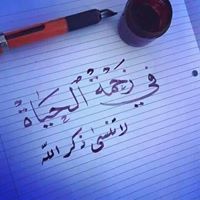 في زَحْمَةْ الْحَيَاةْ
لا تنسى ذكر الله